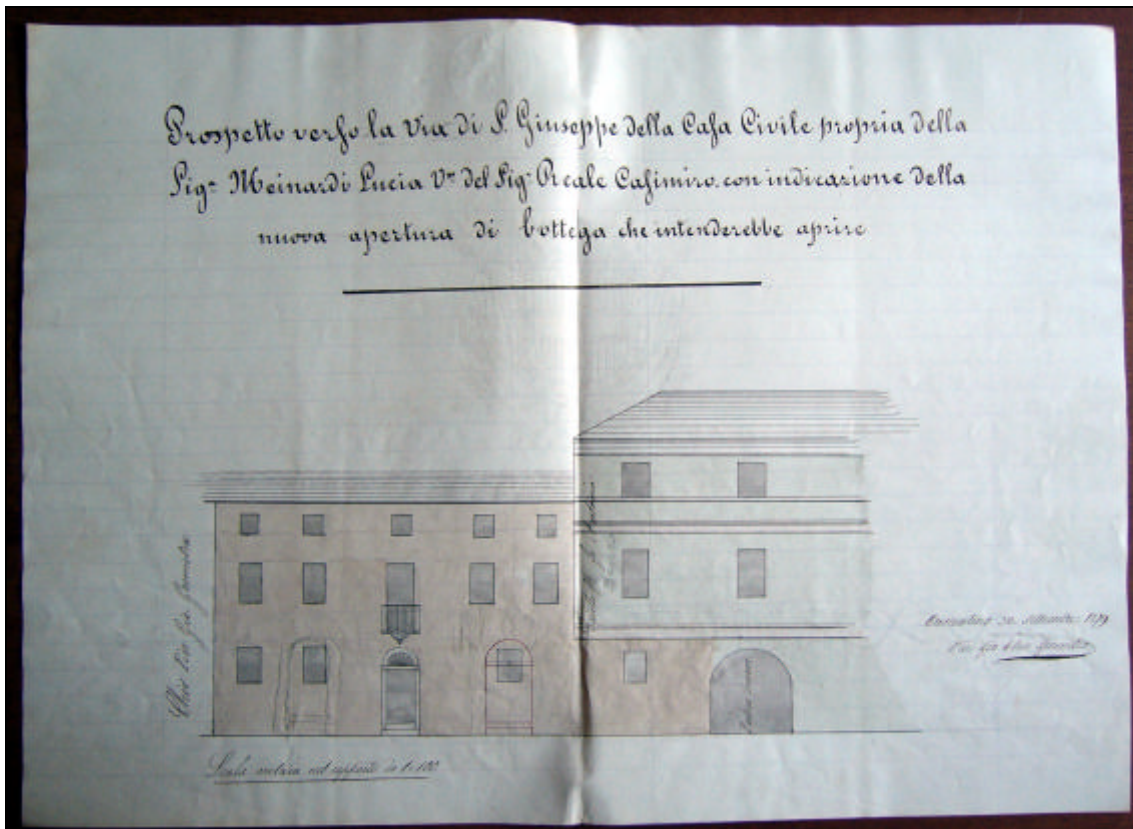 Prospetto verso la Via di S. Giuseppe della Casa Civile propria della
Sigª Meinardi Lucia Vª del Sigʳ Reale Casimiro con indicazione della
nuova apertura di bottega che intenderebbe aprire
Crescentino 30 Settembre 1879
Scala metrica nel rapporto di 1:100